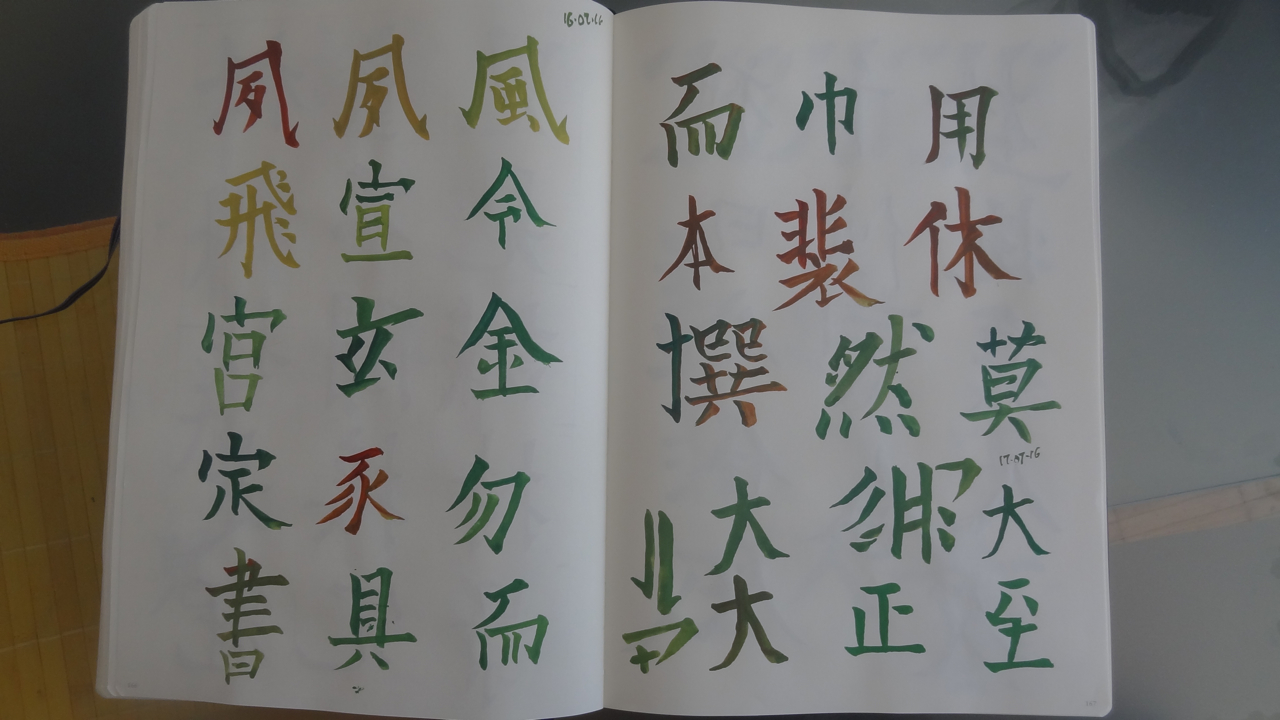 16·07·16
夙夙風
飛宣令
宮玄金
定豕勿
書具而
而巾用
本裴休
撰然莫
17·07·16
大大
大正至